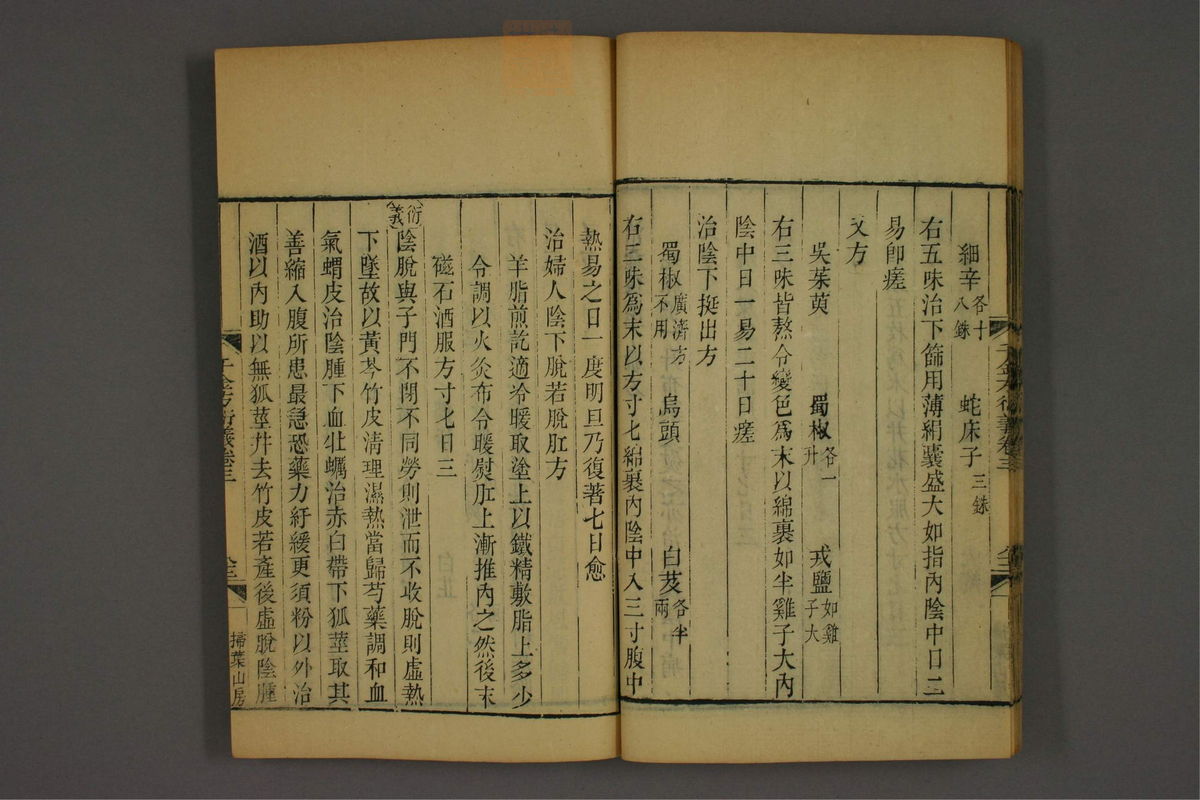 細辛各十八銖 蛇床子三銖
右五味治下篩用薄絹囊盛大如指內陰中日二
易即瘥
又方
吳茱萸 蜀椒各一升 戎鹽如雞子大
右三味皆熬令變色爲末以綿裹如半雞子大內
陰中日一易二十日瘥
治陰下挺出方
蜀椒廣濟方不用 烏頭 白芨各半兩
右三味爲末以方寸七綿裹內陰中入三寸腹中
熱易之日一度明旦乃復著七日愈
治婦人陰下脫若脫肛方
羊脂煎訖適冷暖取塗上以鐵精敷脂上多少
令調以火灸布令暖熨肛上漸推內之然後末
磁石酒服方寸七日三
衍義陰脫與子門不閉不同勞則泄而不收脫則虛熱
下墜故以黃芩竹皮清理濕熱當歸芍藥調和血
氣蝟皮治陰腫下血牡蠣治赤白帶下狐莖取其
善縮入腹所患最急恐藥力紆緩更須粉以外治
酒以內助以無狐莖幷去竹皮若產後虛脫陰腫
千金方衍義卷三
掃葉山房